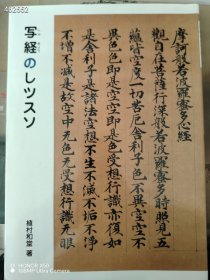 sz002552
摩訶般若波羅蜜多心經
觀自在菩薩行深般若波羅蜜多時照見五
蘊皆空度一切苦厄舍利子色不異空空不
異色色即是空空即是色受想行識亦復如
是舍利子是諸法空相不生不滅不垢不淨
不增不減是故空中无色无受想行識无眼
写経のレッスン
植村和堂 著